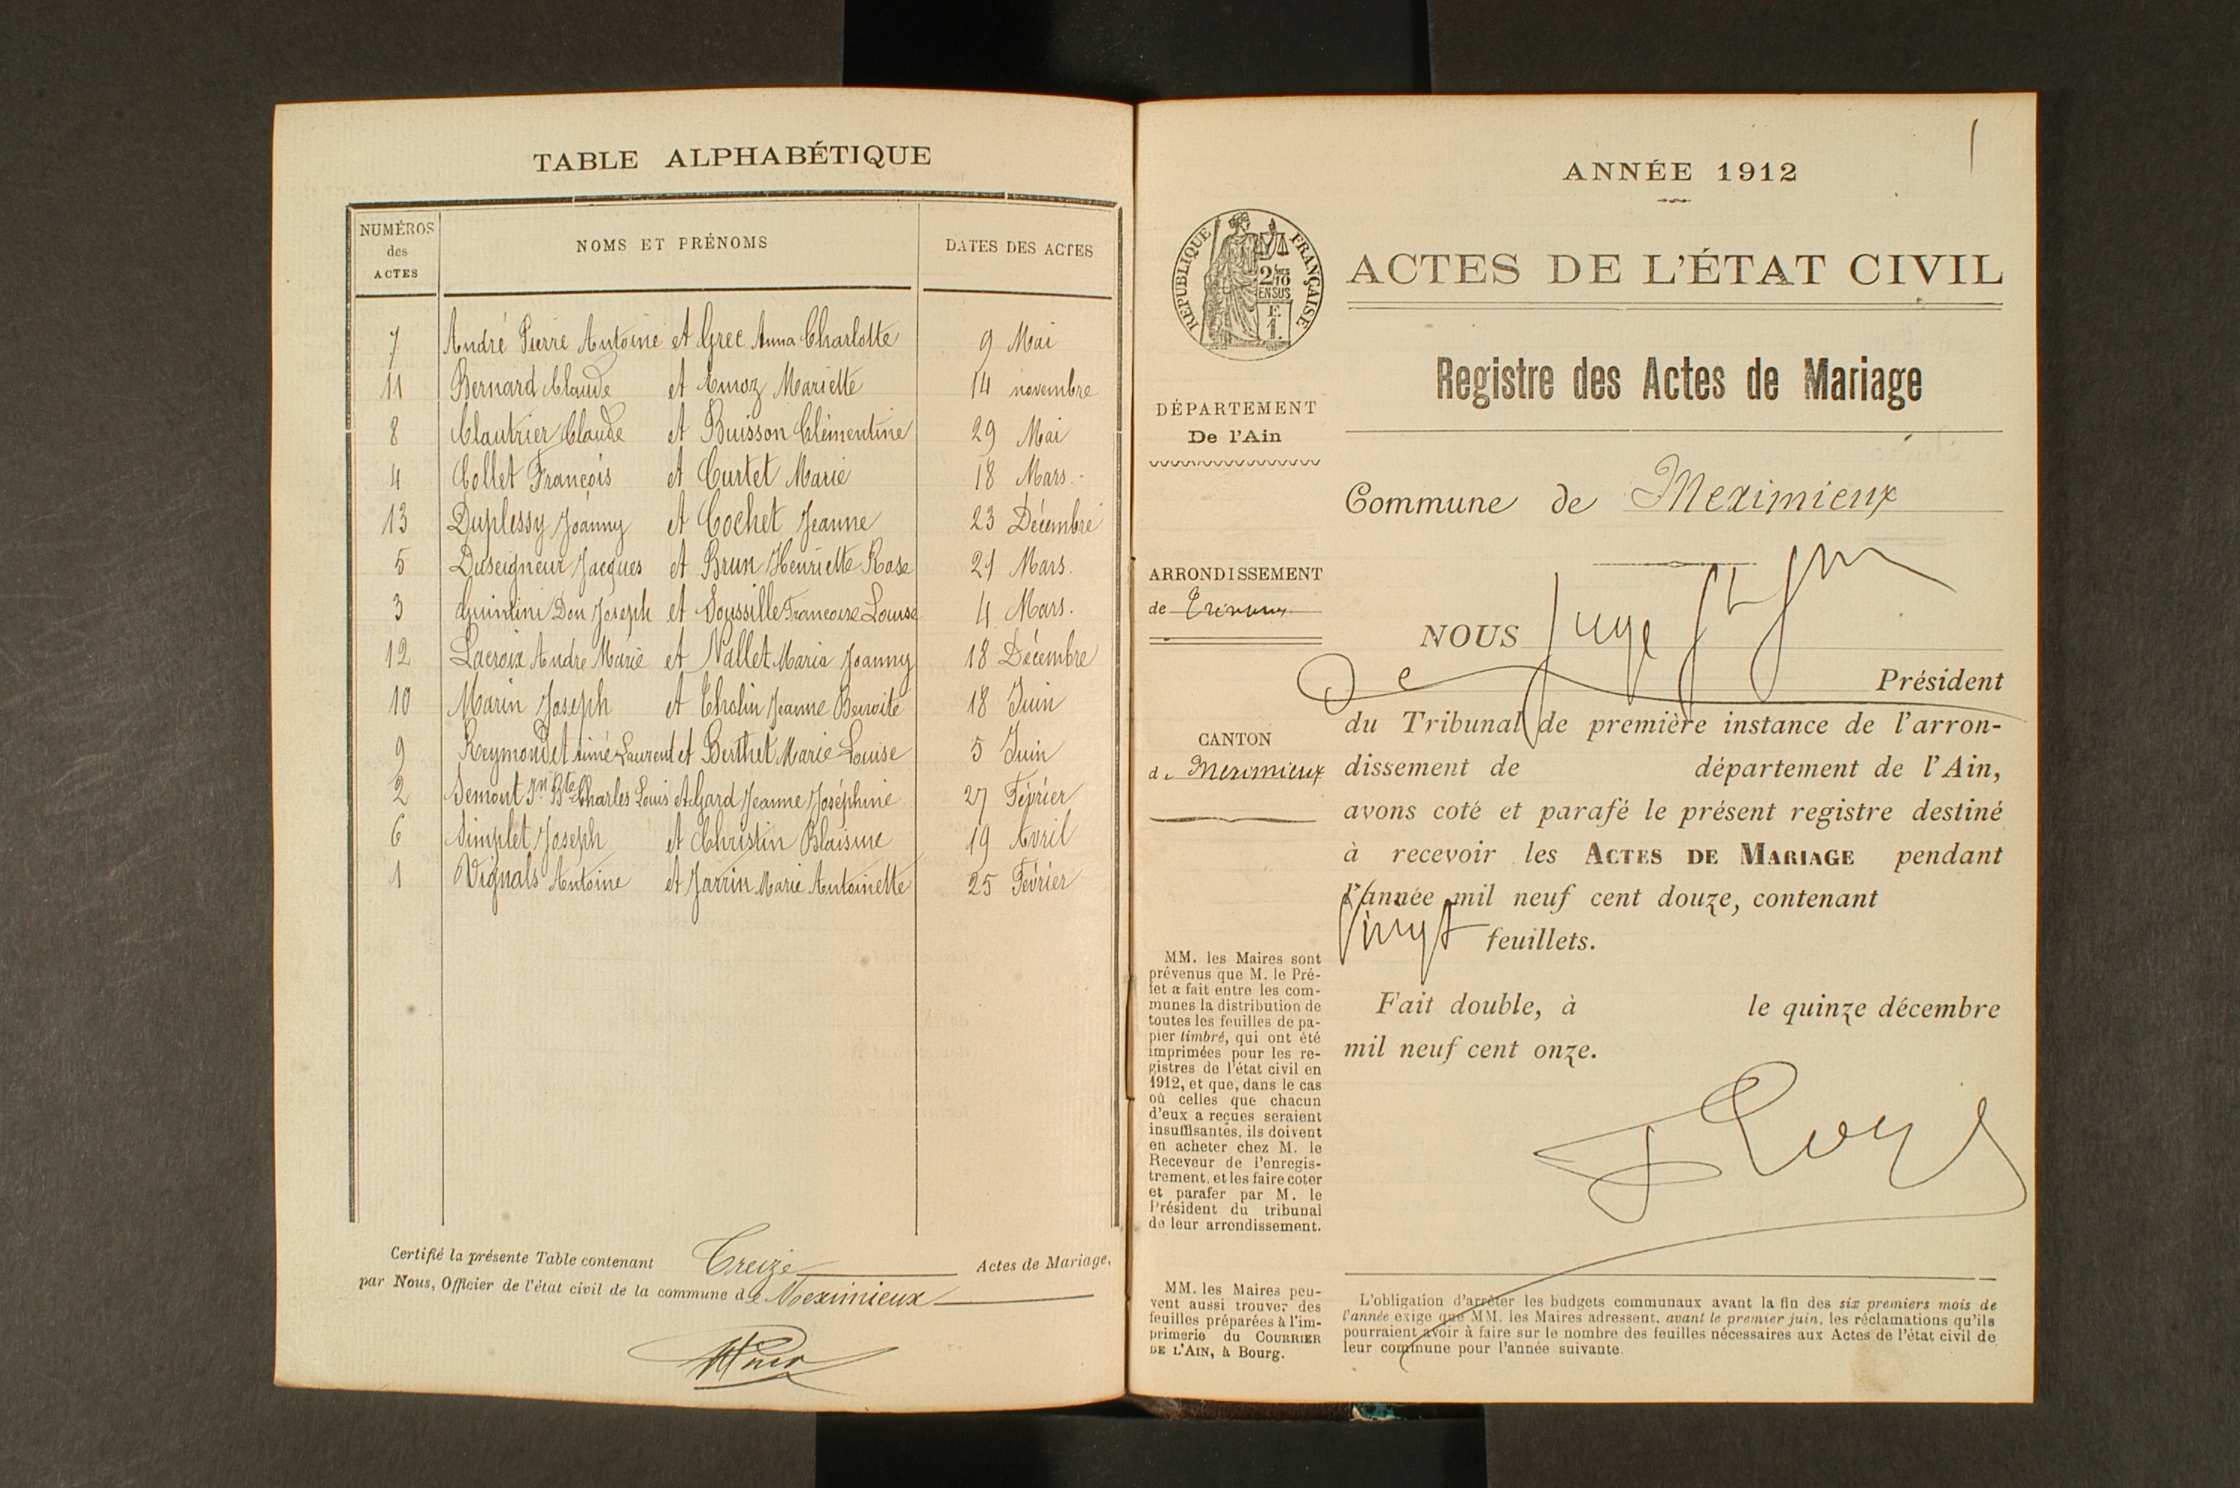 TABLE ALPHABÉTIQUE
NUMÉROS
des
ACTES
NOMS ET PRÉNOMS
DATES DES ACTES
7 André Pierre Antoine et Grec Anna Charlotte 9 Mai
11 Bernard Claude et Emoz Mariette 14 novembre
8 Clautrier Claude et Buisson Clémentine 29 Mai
4 Collet François et Curtet Marie 18 Mars
13 Duplessy Joanny et Cochet Jeanne 23 Décembre
5 Duseigneur Jacques et Brun Henriette Rose 21 Mars.
3 Don Joseph et Françoise Louise 4 Mars.
12 Lacroix André Marie et Vallet Maria Joanny 18 Décembre
10 Marin Joseph et Tholin Jeanne Benoite 18 Juin
9 Reymondet aimé Laurent et Berthet Marie Louise 5 Juin
2 Semont Jn Bte Charles Louis et Gard Jeanne Joséphine 27 Février
6 Simplet Joseph et Christin Blaisine 19 Avril
1 Vignals Antoine et Jarrin Marie Antoinette 25 Février
Certifié la présente Table contenant Treize Actes de Mariage,
par Nous, Officier de l'état civil de la commune de Meximieux
1
ANNÉE 1912
RÉPUBLIQUE FRANÇAISE
2/10
EN SUS
F.
1.
ACTES DE L'ÉTAT CIVIL
Registre des Actes de Mariage
DÉPARTEMENT
De l'Ain
Commune de Meximieux
ARRONDISSEMENT
de Trévoux
NOUS Juge
de Président
du Tribunal de première instance de l'arron-
CANTON
de Meximieux
dissement de département de l'Ain,
avons coté et parafé le présent registre destiné
à recevoir les ACTES DE MARIAGE pendant
l'année mil neuf cent douze, contenant
Vingt feuillets.
Fait double, à le quinze décembre
mil neuf cent onze.
MM. les Maires sont
prévenus que M. le Pré-
fet a fait entre les com-
munes la distribution de
toutes les feuilles de pa-
pier timbré, qui ont été
imprimées pour les re-
gistres de l'état civil en
1912, et que, dans le cas
où celles que chacun
d'eux a reçues seraient
insuffisantes, ils doivent
en acheter chez M. le
Receveur de l'enregis-
trement, et les faire coter
et parafer par M. le
Président du tribunal
de leur arrondissement.
MM. les Maires peu-
vent aussi trouver des
feuilles préparées à l'im-
primerie du COURRIER
DE L'AIN, à Bourg.
L'obligation d'arrêter les budgets communaux avant la fin des six premiers mois de
l'année exige que MM. les Maires adressent, avant le premier juin, les réclamations qu'ils
pourraient avoir à faire sur le nombre des feuilles nécessaires aux Actes de l'état civil de
leur commune pour l'année suivante.